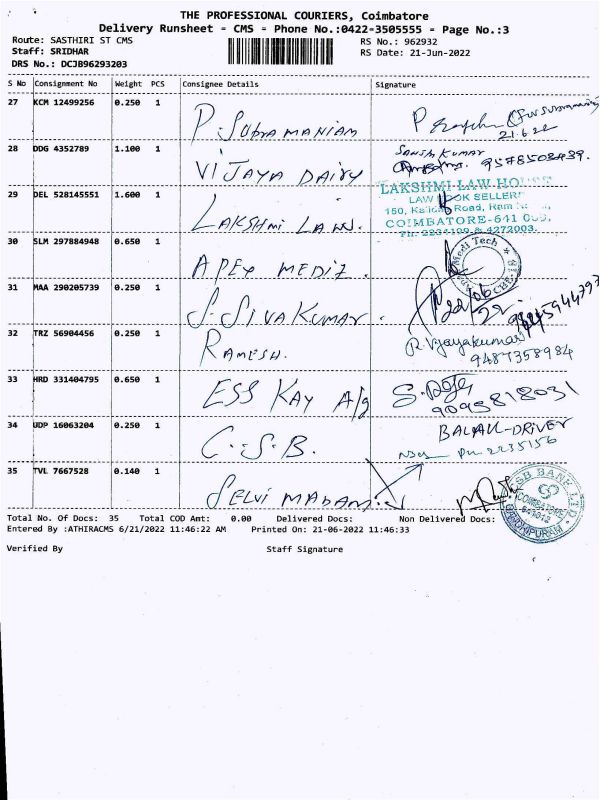 THE PROFESSIONAL COURIERS, Coimbatore
Delivery Runsheet - CMS - Phone No.:0422-3505555 - Page No.:3
Route: SASTHIRI ST CMS
RS No.: 962932
Staff: SRIDHAR
RS Date: 21-Jun-2022
DRS No.: DCJB96293203
S No Consignment No Weight PCS Consignee Details Signature
27 KCM 12499256 0.250 1 P. Subramaniam
21.6.22
28 DDG 4352789 1.100 1 VIJAYA DAIRY
SANJAY KUMAR
9578508439.
29 DEL 528145551 1.600 1 LAKSHMI LAW.
LAKSHMI LAW HOUSE
LAW BOOK SELLERS
150, Road, Ram
COIMBATORE-641 009.
Ph: 2234199 & 4272003.
30 SLM 297884948 0.650 1 APEX MEDIZ.
Medi Tech
31 MAA 290205739 0.250 1 S. SIVAKUMAR.
32 TRZ 56904456 0.250 1 RAMESH.
R. Vijayakumar
9487358984
33 HRD 331404795 0.650 1 ESS KAY A/g
9095818031
34 UDP 16063204 0.250 1 C.S.B.
BALAN-DRIVER
PH 2235156
35 TVL 7667528 0.140 1 SELVI MADAM
CSB BANK LTD.
COIMBATORE
641012
GANDHIPURAM
Total No. Of Docs: 35 Total COD Amt: 0.00 Delivered Docs: Non Delivered Docs:
Entered By :ATHIRACMS 6/21/2022 11:46:22 AM Printed On: 21-06-2022 11:46:33
Verified By Staff Signature